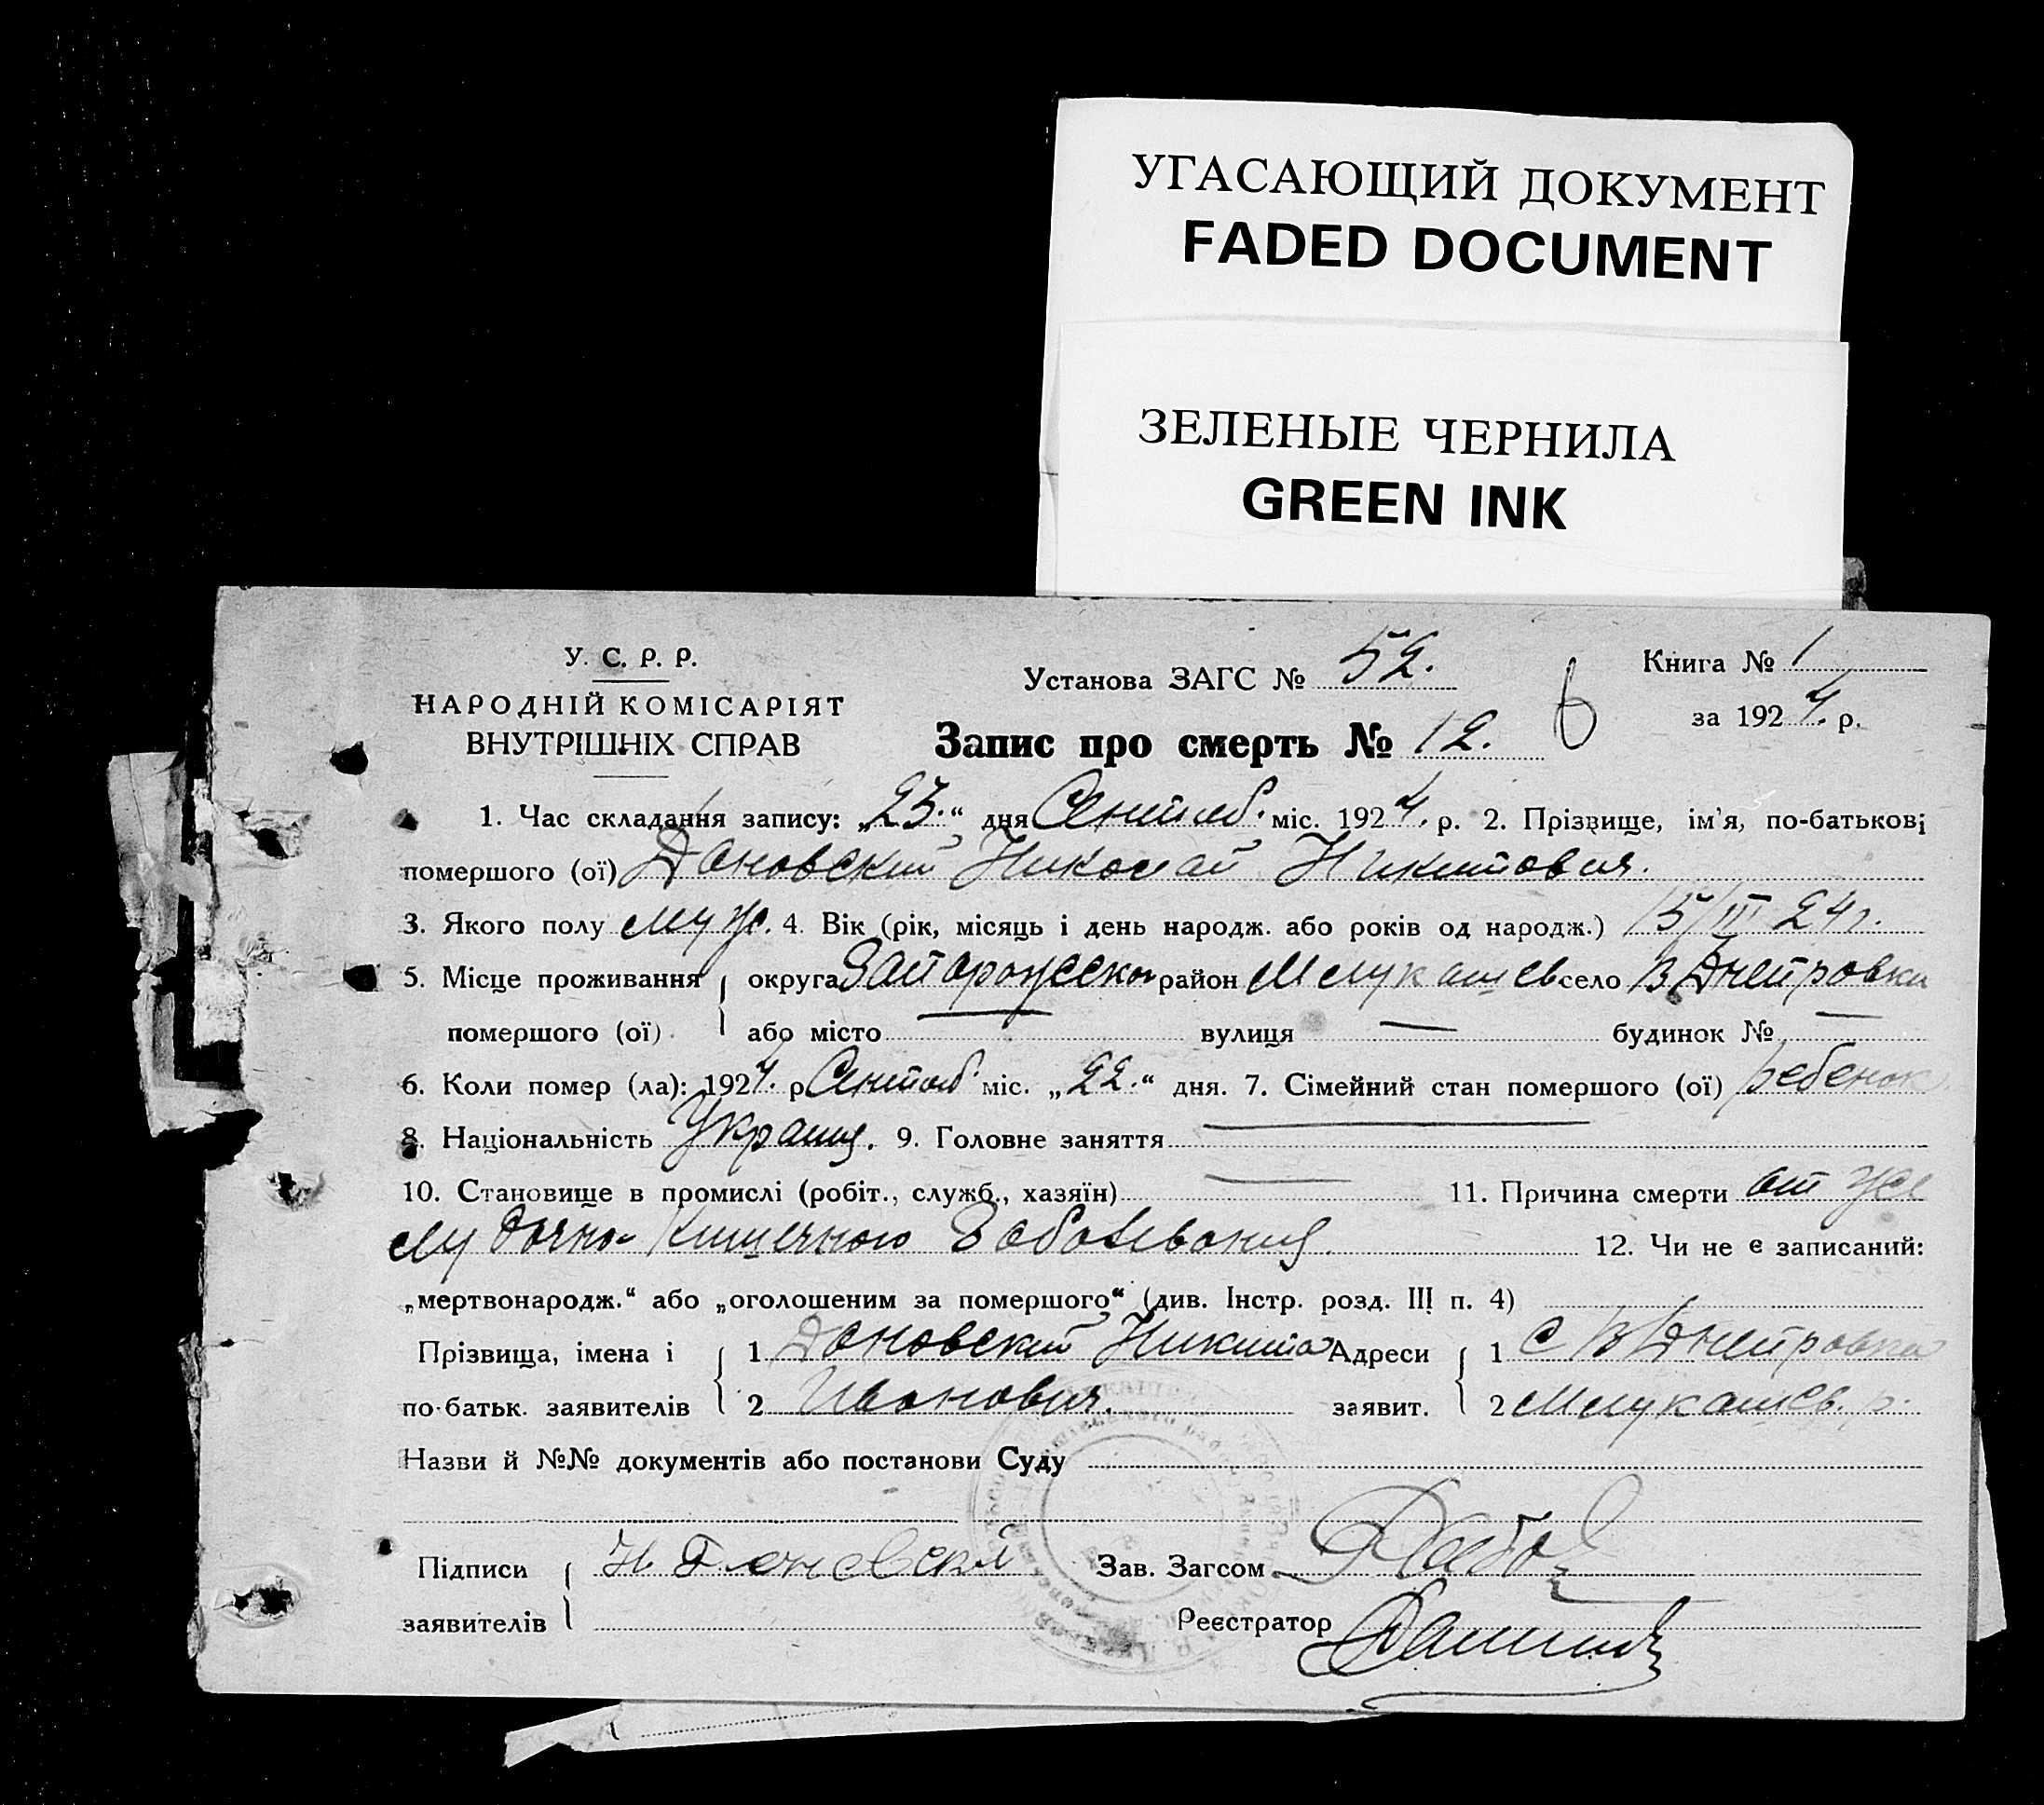 УГАСАЮЩИЙ ДОКУМЕНТ
FADED DOCUMENT
ЗЕЛЕНЫЕ ЧЕРНИЛА
GREEN INK
У. С. Р. Р.
НАРОДНІЙ КОМІСАРІЯТ
ВНУТРІШНІХ СПРАВ
Установа ЗАГС № 52.
Книга № 1
за 1924. р.
Запис про смерть № 12.
1. Час складання запису: „23.“ дня Сентяб. міс. 1924. р. 2. Прізвище, ім'я, по-батькові
помершого (ої) Дановский Николай Никитович.
3. Якого полу муж. 4. Вік (рік, місяць і день народж. або років од народж.) 15/III 24 г.
5. Місце проживання округа Запорожско район село В Днепровки
помершого (ої) або місто — вулиця — будинок № —
6. Коли помер (ла): 1924. р Сентяб. міс. „22.“ дня. 7. Сімейний стан помершого (ої) ребенок
8. Національність Украинц. 9. Головне заняття —
10. Становище в промислі (робіт., служб., хазяїн) — 11. Причина смерти от же
лудочно-Кишечного Заболевания. 12. Чи не є записаний:
„мертвонародж.“ або „оголошеним за помершого“ (див. Інстр. розд. III п. 4)
Прізвища, імена і 1 Дановский Никита Адреси 1 с В Днепровка
по-батьк. заявителів 2 Иванович. заявит. 2
Назви й №№ документів або постанови Суду
Підписи Зав. Загсом
заявителів Реєстратор